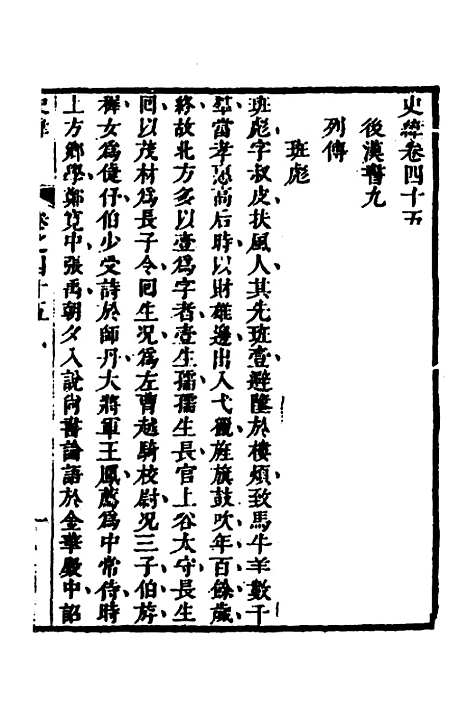 史緯卷四十五
後漢書九
列傳
班彪
班彪字叔皮扶風人其先班壹避墜於樓煩致馬牛羊數千
羣當孝惠高后時以財雄邊出入弋獵旌旗鼓吹年百餘歲
終故北方多以壹爲字者壹生孺孺生長官上谷太守長生
回以茂材爲長子令回生況爲左曹越騎校尉況三子伯斿
穉女爲倢伃伯少受詩於師丹大將軍王鳳薦爲中常侍時
上方鄉學鄭寬中張禹朝夕入說尚書論語於金華殿中詔
卷之四十五
一